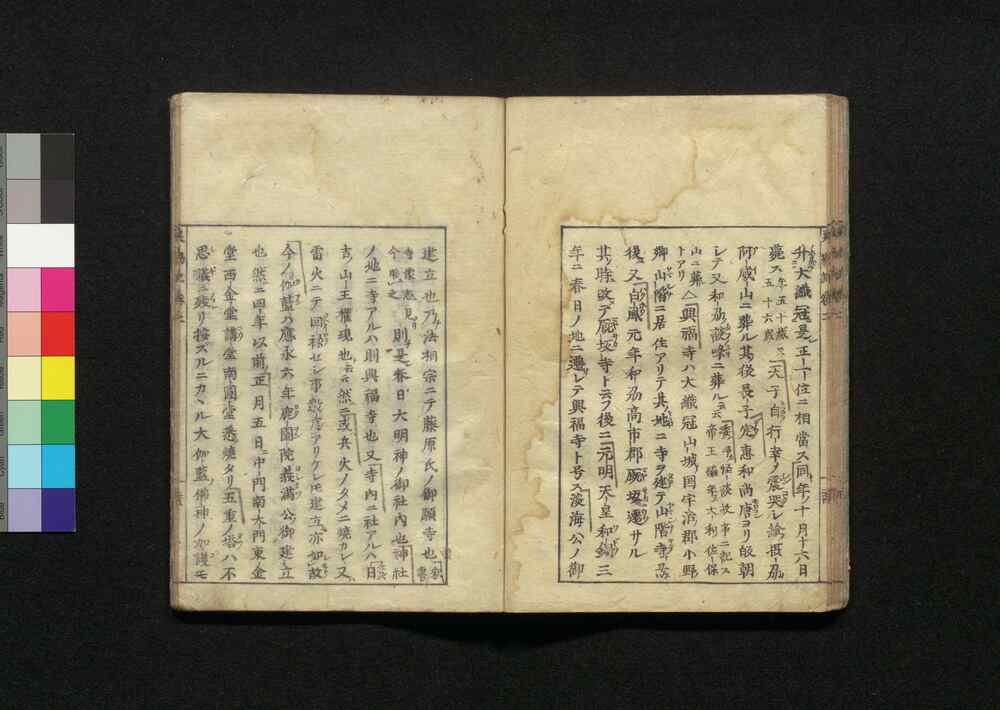 升ニ大識冠是正一位ニ相當ス同年ノ十月十六日
薨ス年五十歳又五十六歳天子自行幸ノ震哭シ諭摂刕
阿威山ニ葬ル其後長子定惠和尚唐ヨリ皈朝
シテ又和刕談峰ニ葬ル帝王編年ニ大利佐保
山ニ葬トアリ△興福寺ハ大識冠山城国宇治郡小野
郷山階ニ居住アリテ其地ニ寺ヲ建テ山階寺ト号
後又白鳳元年和刕高市郡厩坂ニ遷サル
其時改テ厩坂寺ト云フ後ニ元明天皇和銅三
年ニ春日ノ地ニ遷シテ興福寺ト号ス淡海公ノ御
建立也乃法相宗ニテ藤原氏ノ御願寺也
則是春日大明神ノ御社内也神社
ノ地ニ寺アルハ則興福寺也又寺内ニ社アルハ日
吉ノ山王権現也云云然ニ或兵火ノタメニ焼カレ又
雷火ニテ回禄セシ事アリケレモ建立亦如故
今ノ伽藍ハ應永六年鹿園院義満公御建立
也然ニ四年以前正月五日中門南大門東金
堂西金堂講堂南圓堂悉焼タリ五重ノ塔ハ不
思儀ニ残リ按ズルニカヽル大伽藍佛神ノ加護モ